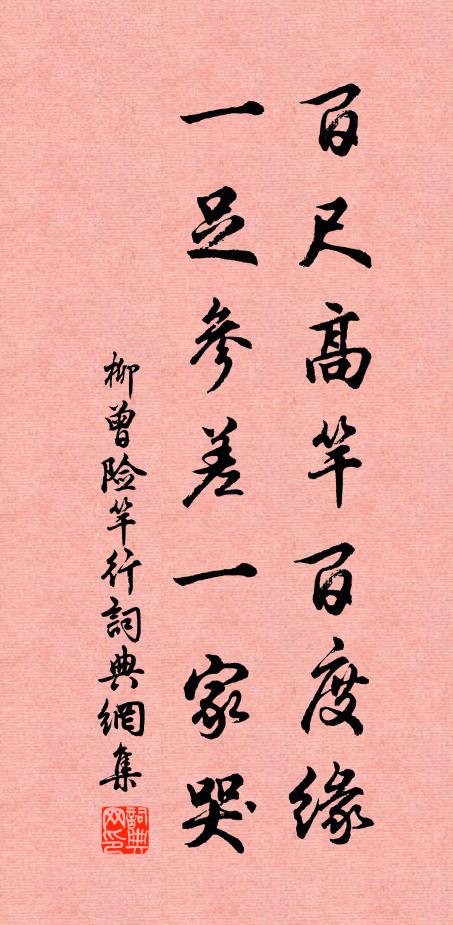 百尺高竿百度缘
一足参差一家哭
柳曾险竿行詞典網集
詞典网印